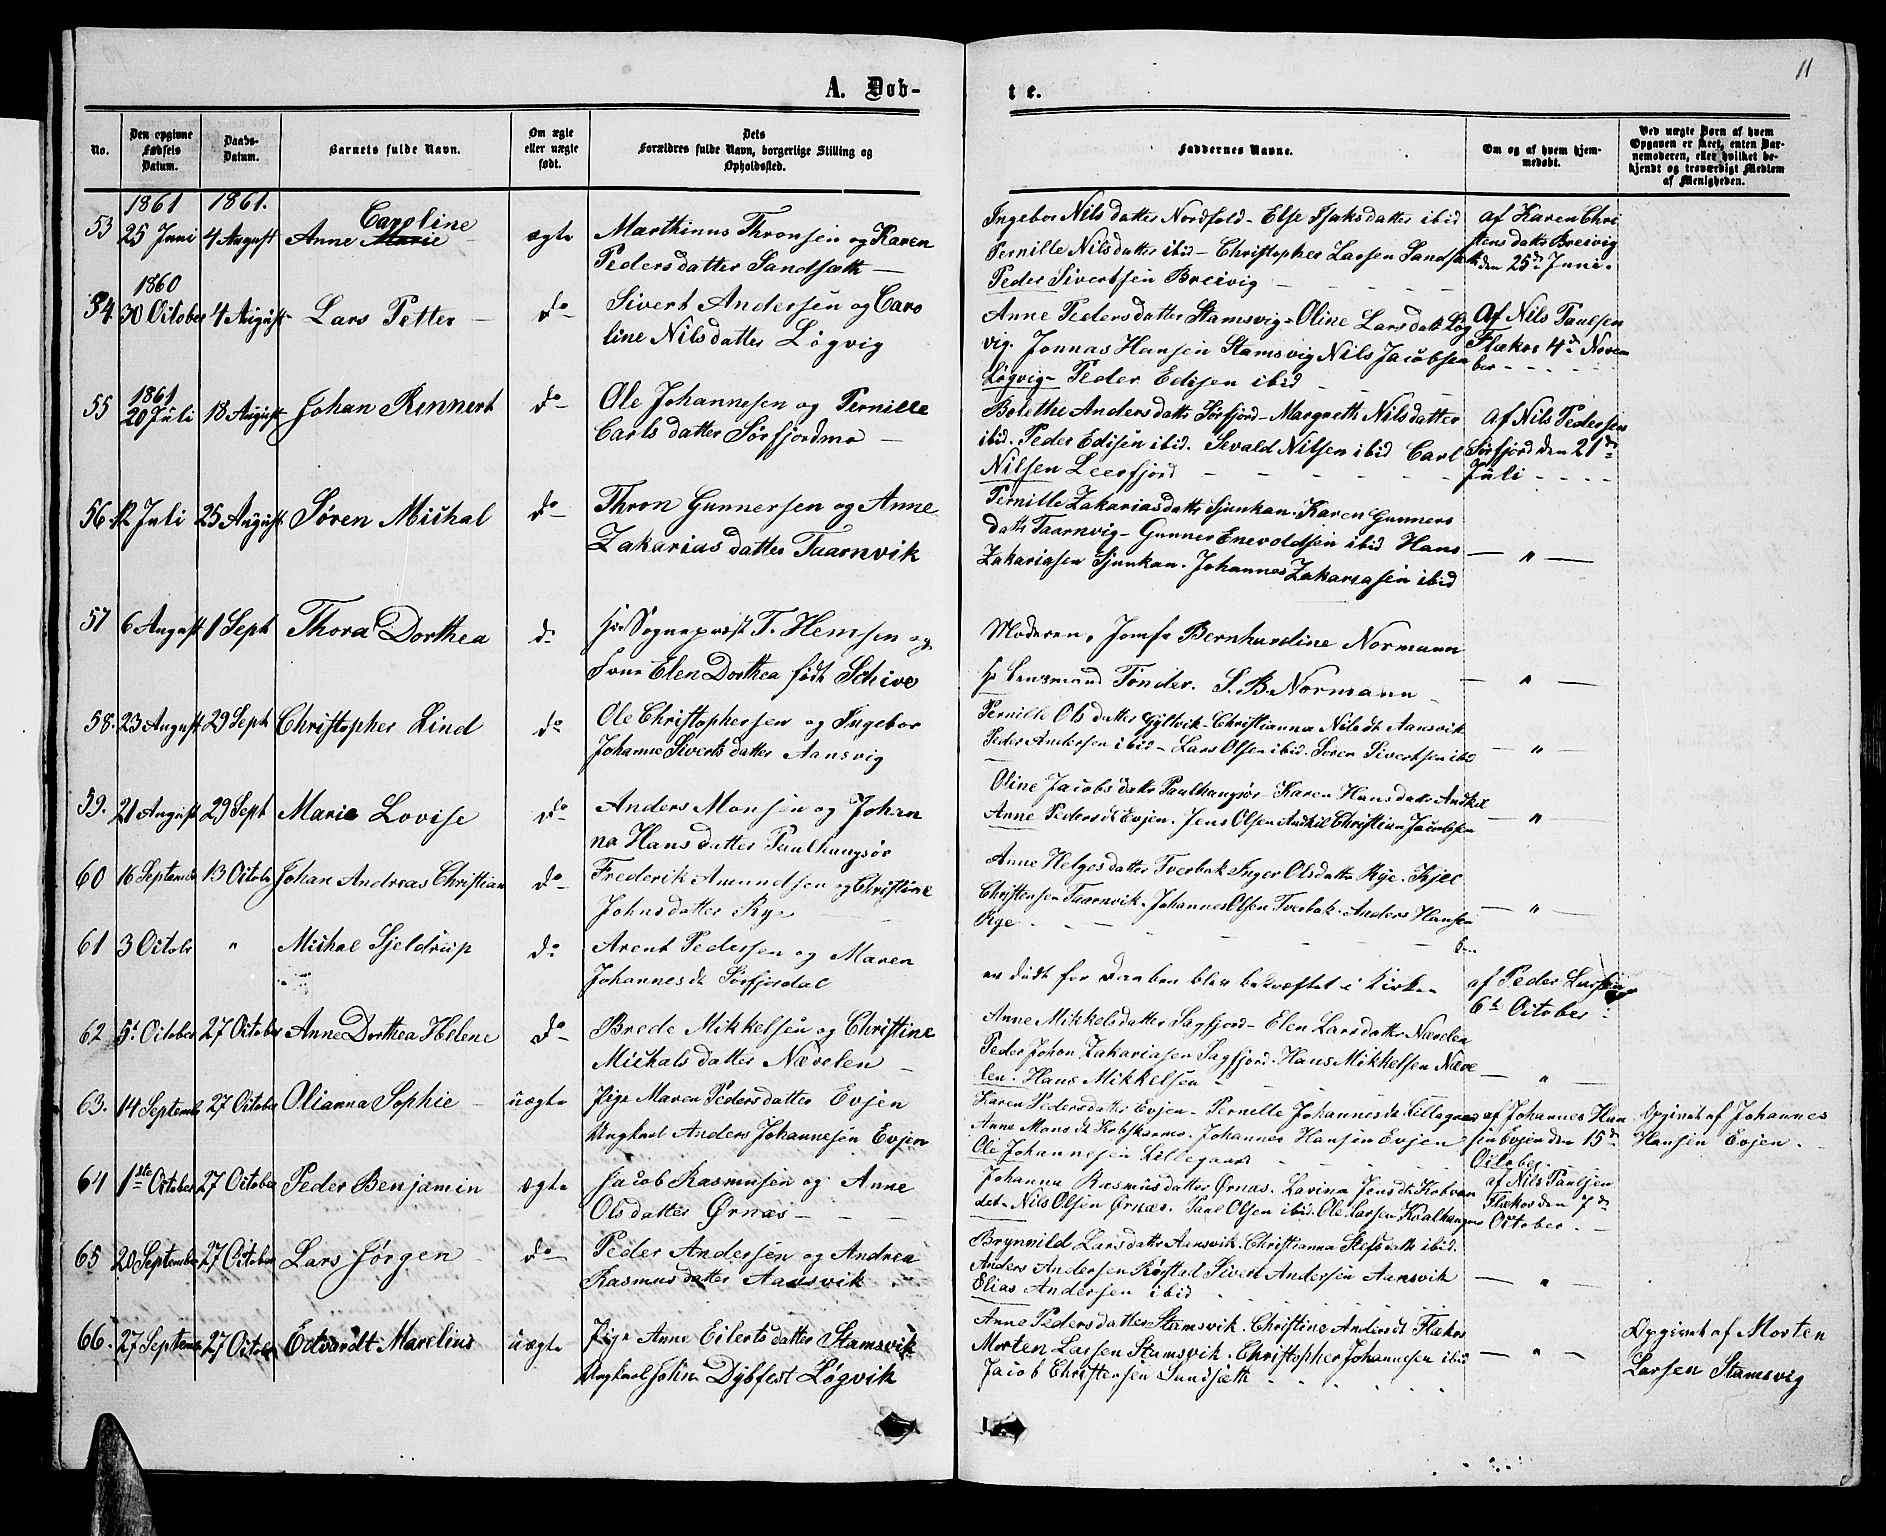 11
A. Døb-
te.
No.
Den opgivne Fødsels Datum.
Daabs-Datum.
Barnets fulde Navn.
Om ægte eller uægte født.
Dets Forældres fulde Navn, borgerlige Stilling og Opholdssted.
Faddernes Navne.
Om og af hvem hjemmedøbt.
Ved uægte Børn af hvem Opgaven er skeet, enten Barnemoderen, eller hvilket bekjendt og troværdigt Medlem af Menigheden.
1861 1861.
53 25 Juni 4 August Anne Marie Caroline ægte Marthinus Thronsen og Karen
Pedersdatter Sandsæth
Ingebor Nilsdatter Nordfold - Else Isaksdatter ibid
Pernille Nilsdatter ibid - Christopher Larsen Sandsæth
Peder Sivertsen Breivig
af Karen Chri
stensdatr Breivig
den 25de Juni.
1860
54 30 October 4 August Lars Petter do Sivert Andersen og Caro
line Nilsdatter Løgvig
Anne Pedersdatter Stamsvig - Oline Larsdatr Løg
vig. Jonnas Hansen Stamsvig Nils Jacobsen
Løgvig - Peder Edisen ibid
Af Nils Paulsen
Flækos 4de Novem
ber
1861
55 20 Juli 18 August Johan Rennert do Ole Johannesen og Pernille
Carlsdatter Sørfjordmo
Bolethe Andersdatr Sørfjord - Margreth Nilsdatter
ibid. Peder Edisen ibid. Sevald Nilsen ibid Carl
Nilsen Leerfjord
Af Nils Pedersen
Sørfjord den 21de
Juli
56. 12 Juli 25 August Søren Michal do Thron Gunnersen og Anne
Zakariasdatter Taarnvik
Pernille Zakariasdatr Sjunkan. Karen Gunners
datr Taarnvig - Gunner Enevoldsen ibid Hans
Zakariasen Sjunkan. Johannes Zakariasen ibid
— " —
57 6 August 1 Sept Thora Dorthea do Hr Sognepræst T. Hemsen og
Frue Elen Dorthea født Schive
Moderen, Jomfr Bernhardine Normann
Hr Lensmand Tønder. S. B. Normann
— " —
58. 23 August 29 Sept Christopher Lind do Ole Christophersen og Ingebor
Johanne Sivertsdatter Aansvig
Pernille Olsdatter Gyltvik - Christianna Nilsdt Aansvik
Peder Andersen ibid - Lars Olsen ibid. Søren Sivertsen ibid
— " —
59. 21 August 29 Sept Marie Lovise do Anders Monsen og Johan
na Hansdatter Paulhaugsør
Oline Jacobsdatr Paulhaugsør - Karen Hansdatr Andkil
Anne Pedersdt Evjen. Jens Olsen Andkil Christian Jacobsen
— " —
60 16 Septembr 13 Octobr Johan Andreas Christian do Frederik Amundsen og Christine
Johnsdatter Rye
Anne Helgesdatter Tverbak Inger Olsdatr Rye. Kjel
Christensen Taarnvik. Johannes Olsen Tverbak. Anders Hansen
Rye
— " —
61 3 Octobr " Michal Sjeldrup do Arent Pedersen og Maren
Johannesdt Sørfjordal
er død før Daaben blev bekræftet i Kirken
af Peder Larsen
6te October
62 5t October 27 October Anne Dorthea Helene do Brede Mikkelsen og Christine
Michalsdatter Nævelen
Anne Mikkelsdatter Sagfjord - Elen Larsdatr Nævelen
Peder Johan Zakariasen Sagfjord. Hans Mikkelsen Næve
len. Hans Mikkelsen
— " —
63. 14 Septembr 27 October Olianna Sophie uægte Pige Maren Pedersdatter Evjen
Ungkarl Anders Johannesen Evjen
Karen Pedersdatter Evjen - Pernille Johannesdt Lillegaard
Anne Monsdt Kobskarmo. Johannes Hansen Evjen
Ole Johannesen Lillegaard
af Johannes Han
sen Evjen den 15de
October.
Opgivet af Johannes
Hansen Evjen.
64 1ste October 27 October Peder Benjamin ægte Jacob Rasmusen og Anne
Olsdatter Ørnæs
Johanna Rasmusdatter Ørnæs. Lavina Jensdt Kobvan
det - Nils Olsen Ørnæs. Paul Olsen ibid. Ole Larsen Kvalhaugnes
af Nils Paulsen
Flækos den 7de
October.
65 20 September 27 October Lars Jørgen do Peder Andersen og Andrea
Rasmusdatter Aansvik
Brynnild Larsdatr Aansvik. Christianna Slefsdatr ibid.
Anders Andersen Rørstad Sivert Andersen Aansvik
Elias Andersen ibid
— " —
66 27 Septembr 27 Octobr Edvardt Marelius uægte Pige Anne Eilertsdatter Stamsvik
Ungkarl John Dybfest Løgvik
Anne Pedersdatter Stamsvik. Christine Andersdt Flækos
Morten Larsen Stamsvik. Christopher Johannesen ibid
Jacob Christensen Sundsæth
— " —
Opgivet af Morten
Larsen Stamsvig